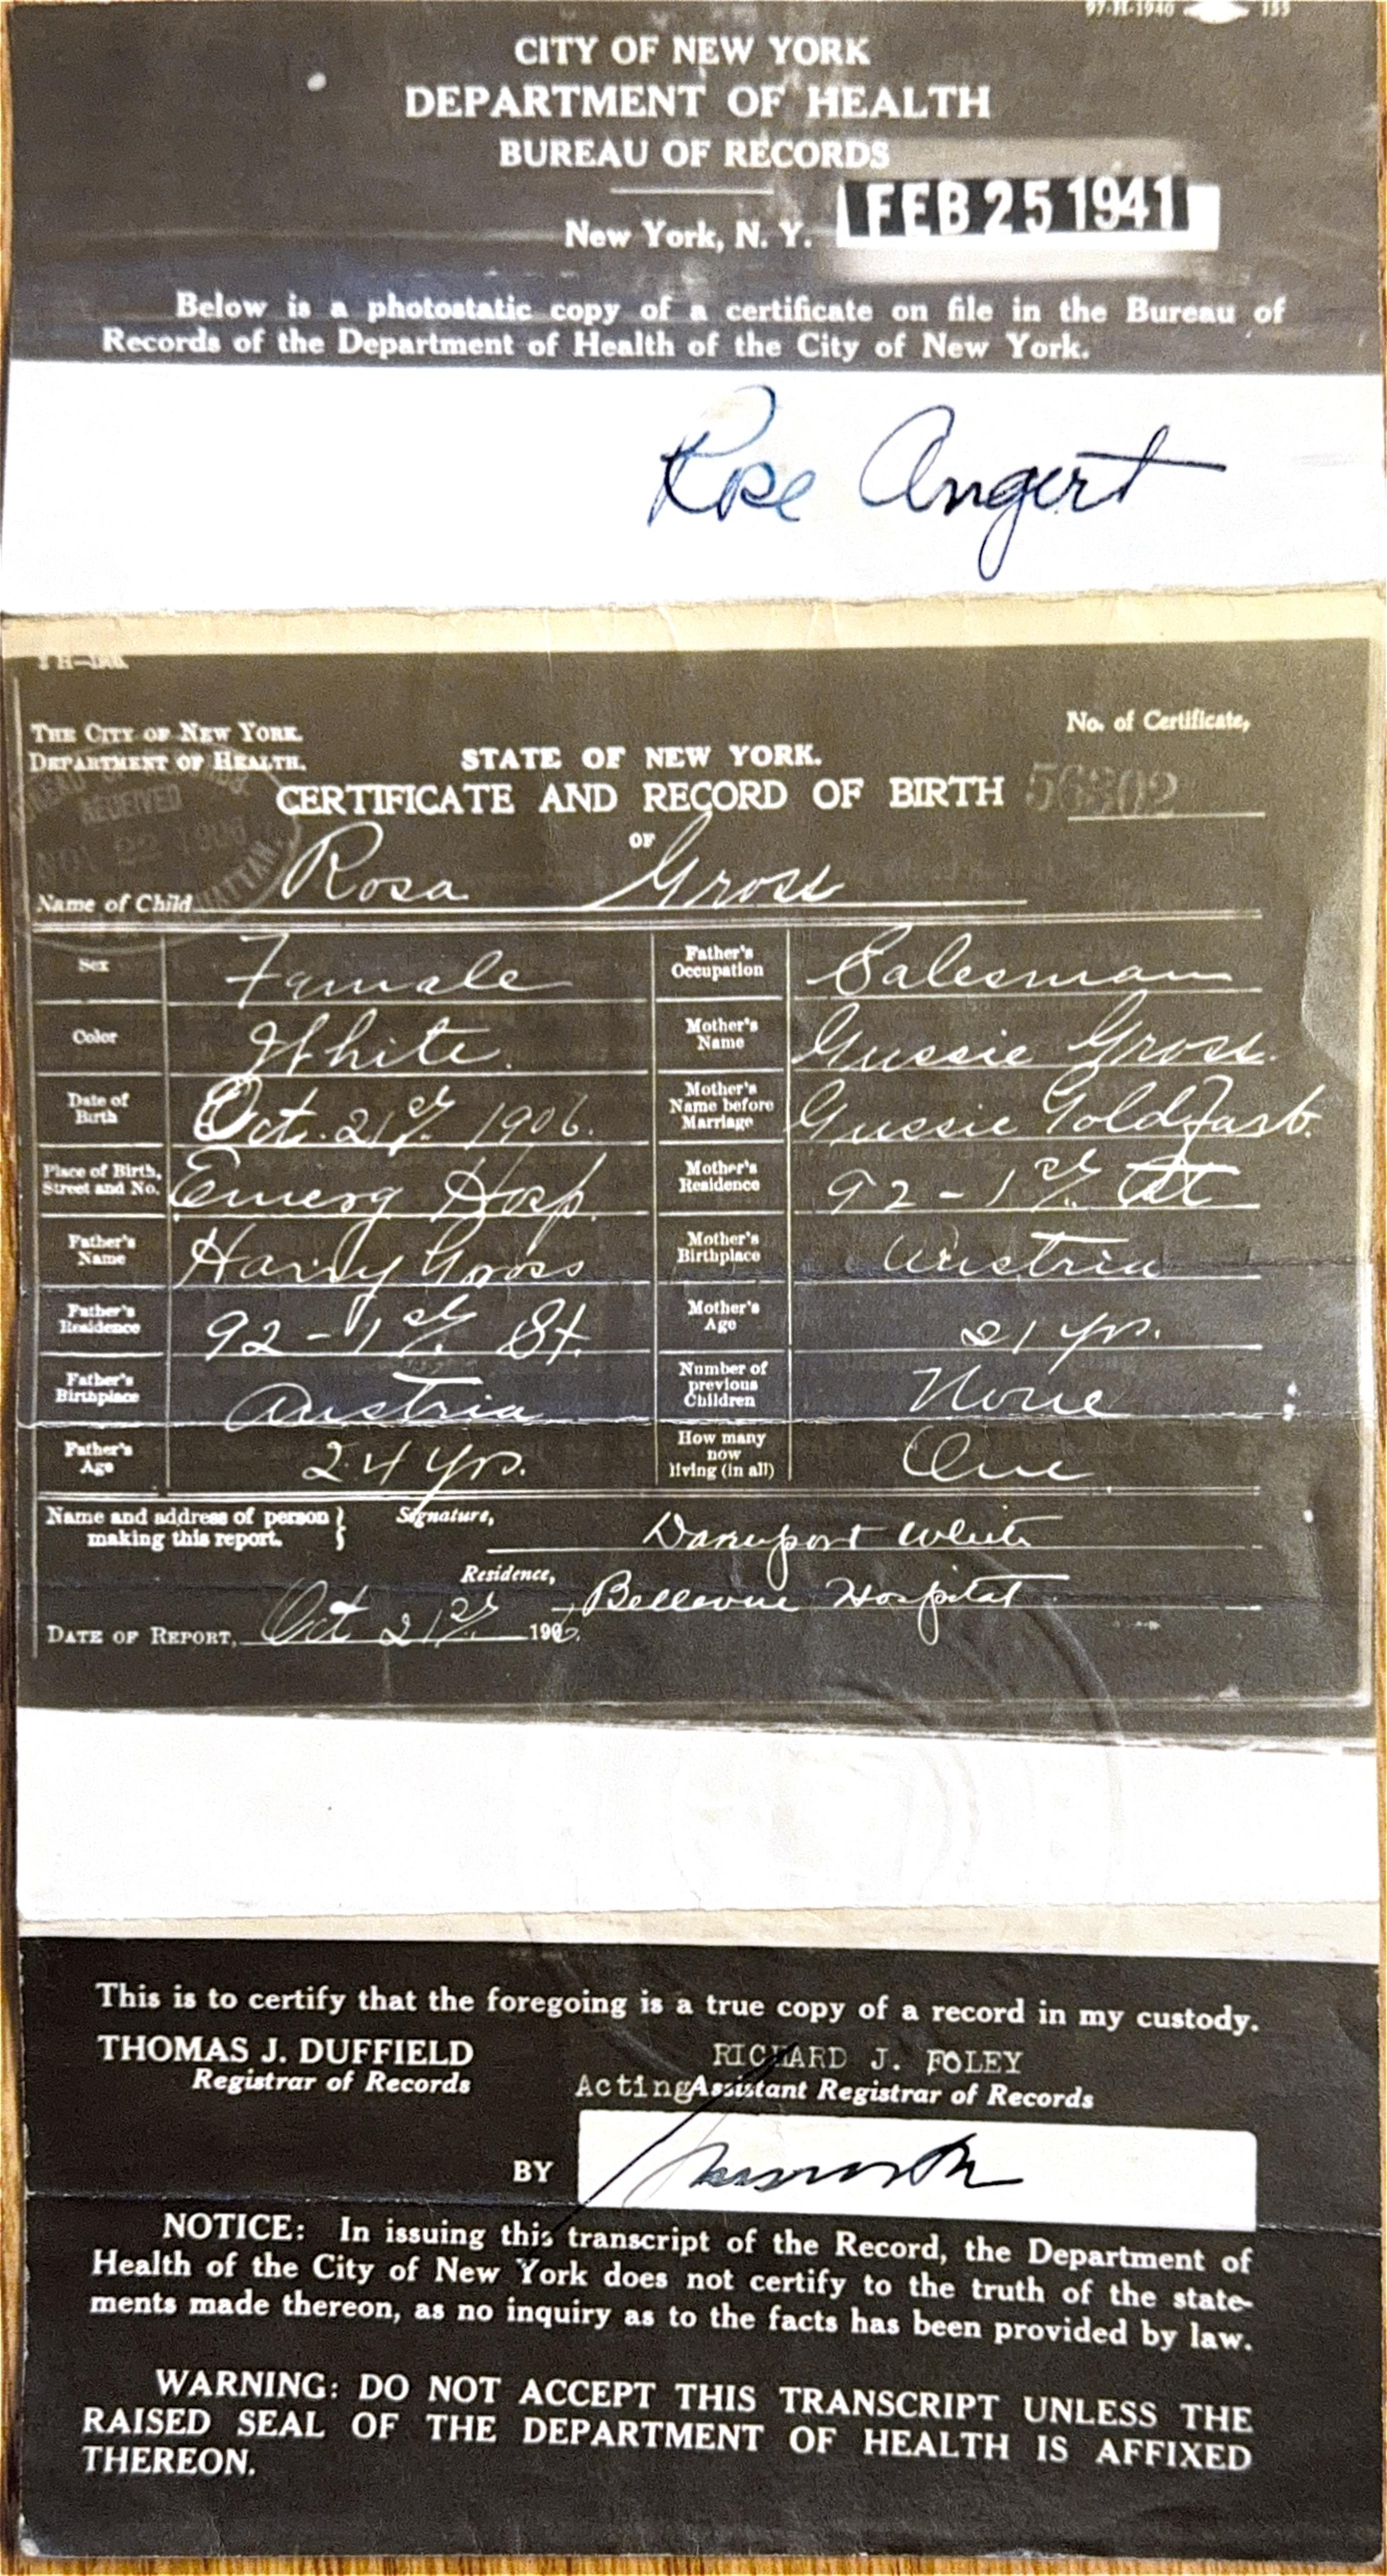 97-H-1940 155
CITY OF NEW YORK
DEPARTMENT OF HEALTH
BUREAU OF RECORDS
New York, N. Y. FEB 25 1941
Below is a photostatic copy of a certificate on file in the Bureau of
Records of the Department of Health of the City of New York.
Rose Angert
THE CITY OF NEW YORK.
DEPARTMENT OF HEALTH.
No. of Certificate,
STATE OF NEW YORK.
CERTIFICATE AND RECORD OF BIRTH 56302
OF
RECEIVED
NOV 22 1906
Name of Child Rosa Gross
Sex Female
Father's Occupation Salesman
Color White.
Mother's Name Gussie Gross.
Date of Birth Oct. 21st 1906.
Mother's Name before Marriage Gussie Goldfarb.
Place of Birth, Street and No. Emerg Hosp.
Mother's Residence 92-1st St
Father's Name Harry Gross
Mother's Birthplace Austria
Father's Residence 92-1st St.
Mother's Age 21 yrs.
Father's Birthplace Austria
Number of previous Children None
Father's Age 24 yrs.
How many now living (in all) One
Name and address of person making this report. Signature, Davenport White
Residence, Bellevue Hospital
DATE OF REPORT, Oct 21st 1906.
This is to certify that the foregoing is a true copy of a record in my custody.
THOMAS J. DUFFIELD
Registrar of Records
RICHARD J. FOLEY
Acting Assistant Registrar of Records
BY
NOTICE: In issuing this transcript of the Record, the Department of
Health of the City of New York does not certify to the truth of the state-
ments made thereon, as no inquiry as to the facts has been provided by law.
WARNING: DO NOT ACCEPT THIS TRANSCRIPT UNLESS THE
RAISED SEAL OF THE DEPARTMENT OF HEALTH IS AFFIXED
THEREON.